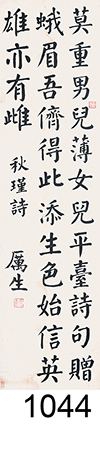 莫重男兒薄女兒平臺詩句贈
蛾眉吾儕得此添生色始信英
雄亦有雌
秋瑾詩
厲生
1044